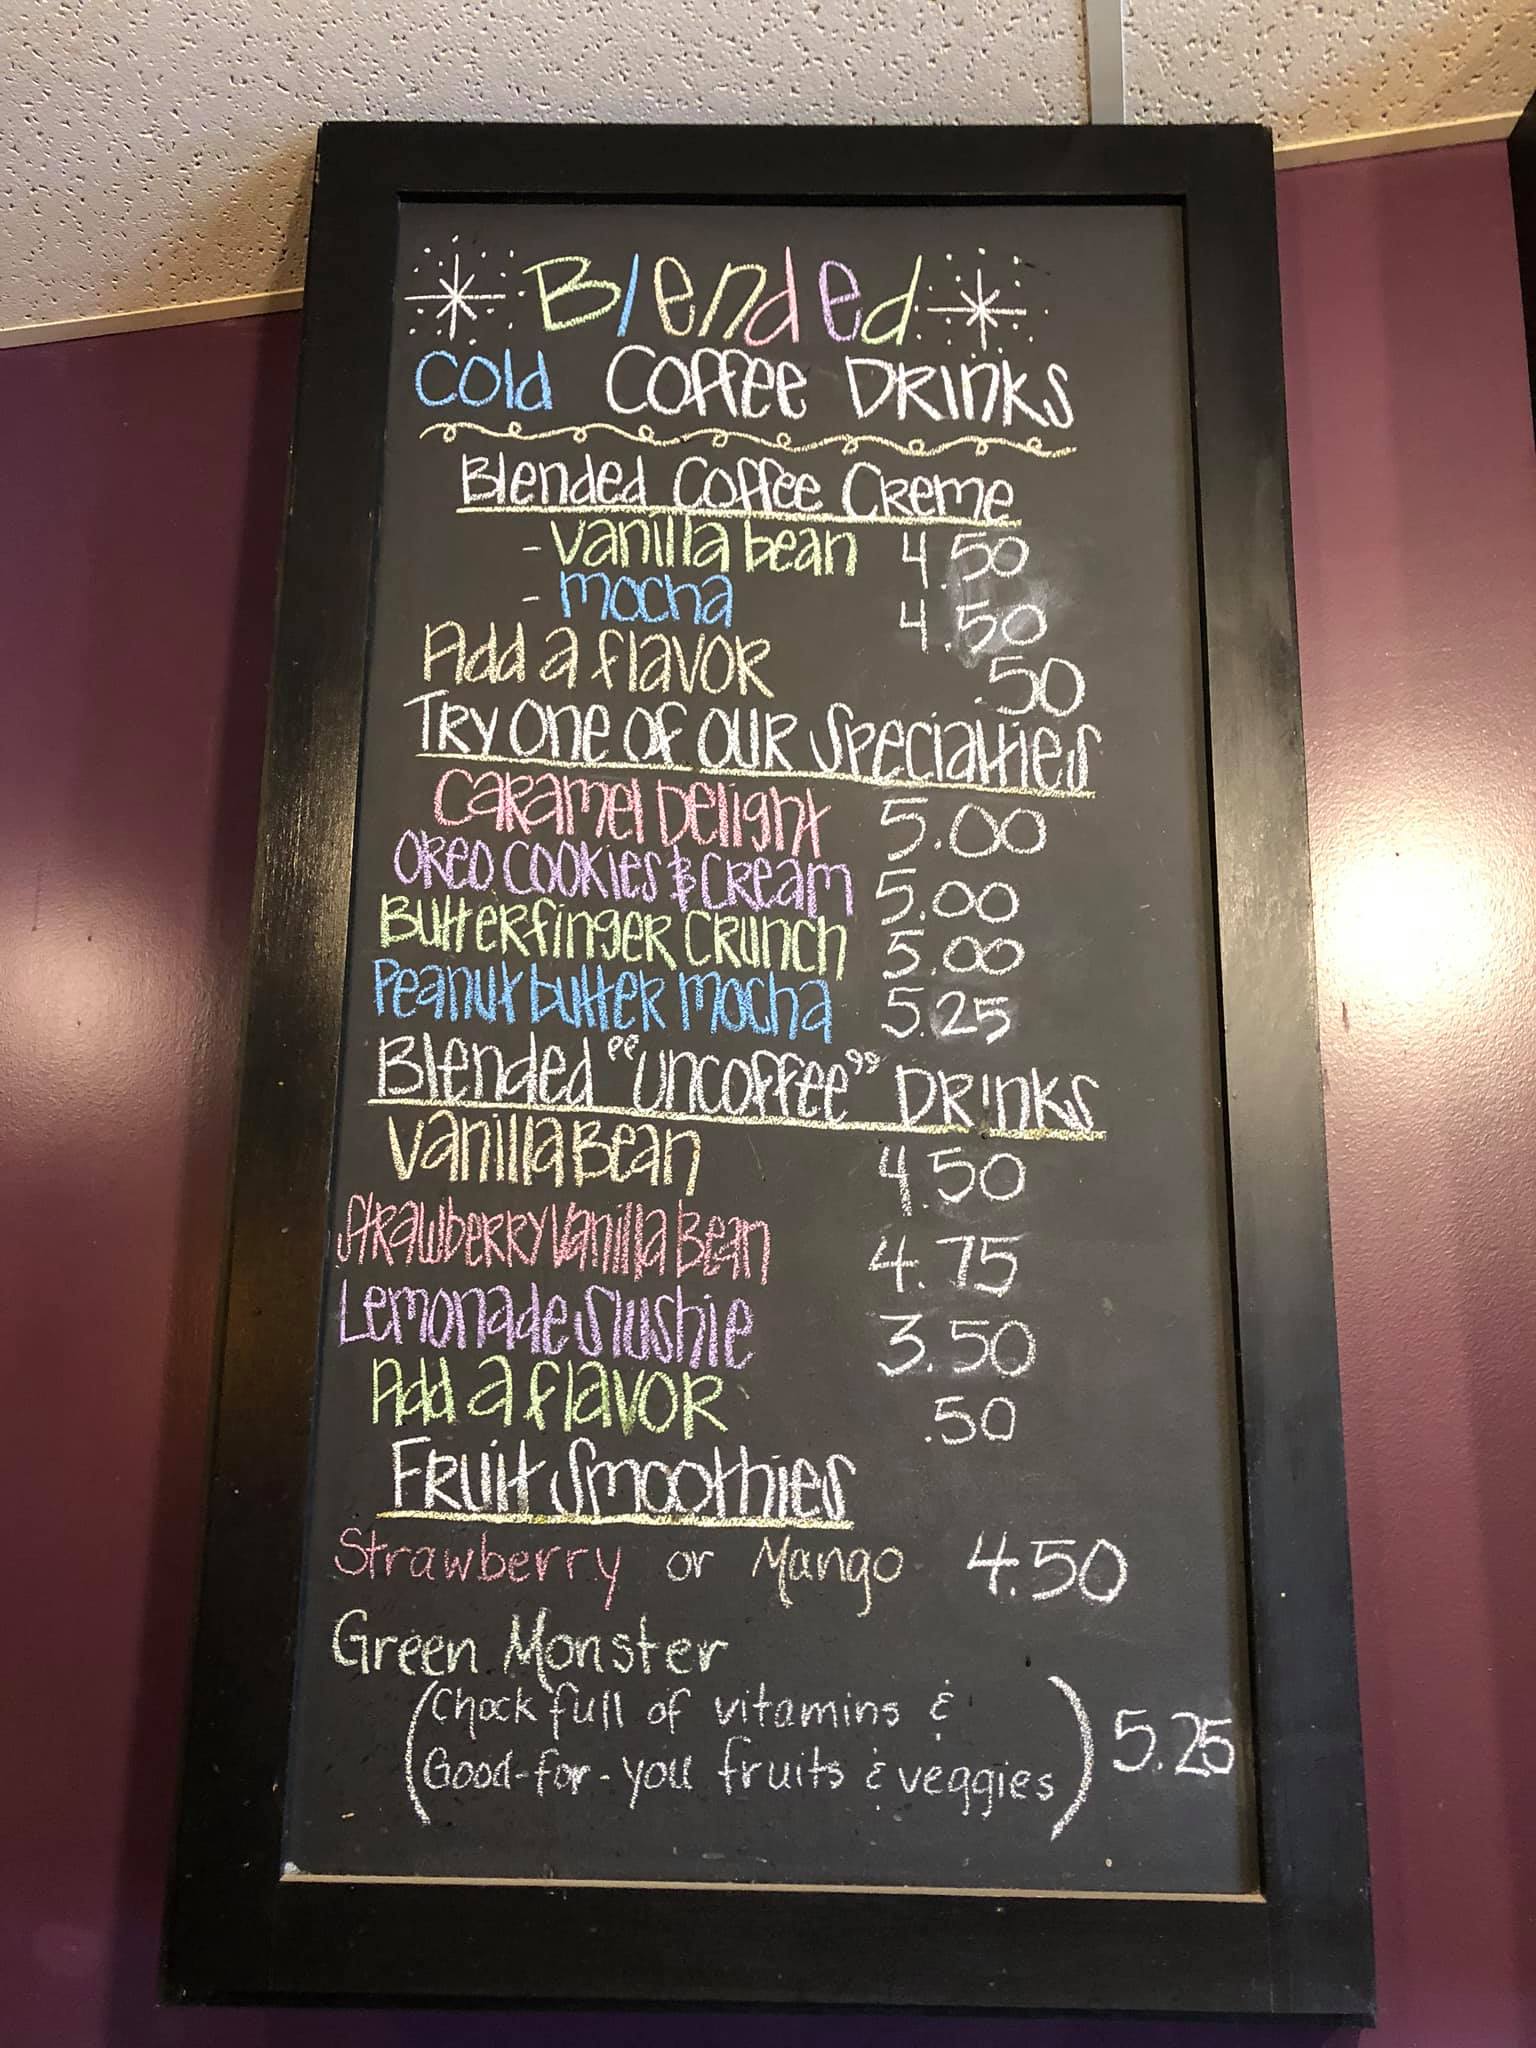 Blended
Cold Coffee Drinks
Blended Coffee Creme
- Vanilla bean 4.50
- mocha 4.50
Add a flavor .50
Try One of our Specialties
Caramel Delight 5.00
Oreo Cookies & Cream 5.00
Butterfinger Crunch 5.00
Peanut butter mocha 5.25
Blended "uncoffee" Drinks
Vanilla Bean 4.50
Strawberry Vanilla Bean 4.75
Lemonade Slushie 3.50
Add a flavor .50
Fruit Smoothies
Strawberry or Mango 4.50
Green Monster
(Chock full of vitamins &
Good-for-you fruits & veggies) 5.25